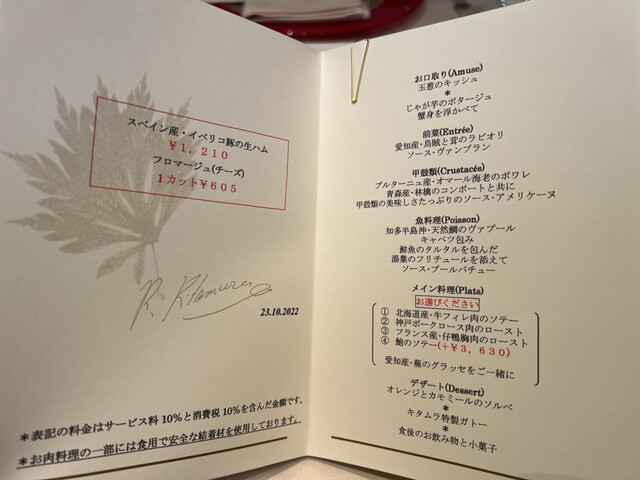 スペイン産・イベリコ豚の生ハム
￥1,210
フロマージュ(チーズ)
1カット￥605
23.10.2022
＊表記の料金はサービス料10%と消費税10%を含んだ金額です。
＊お肉料理の一部には食用で安全な結着材を使用しております。
お口取り(Amuse)
玉葱のキッシュ
＊
じゃが芋のポタージュ
蟹身を浮かべて
前菜(Entrée)
愛知産・烏賊と茸のラビオリ
ソース・ヴァンブラン
甲殻類(Crustacés)
ブルターニュ産・オマール海老のポワレ
青森産・林檎のコンポートと共に
甲殻類の美味しさたっぷりのソース・アメリケーヌ
魚料理(Poisson)
知多半島沖・天然鯛のヴァプール
キャベツ包み
鮮魚のタルタルを包んだ
湯葉のフリチュールを添えて
ソース・ブールバチュー
メイン料理(Plata)
お選びください
① 北海道産・牛フィレ肉のソテー
② 神戸ポークロース肉のロースト
③ フランス産・仔鴨胸肉のロースト
④ 鮑のソテー(＋￥3,630)
愛知産・蕪のグラッセをご一緒に
デザート(Dessert)
オレンジとカモミールのソルベ
＊
キタムラ特製ガトー
＊
食後のお飲み物と小菓子